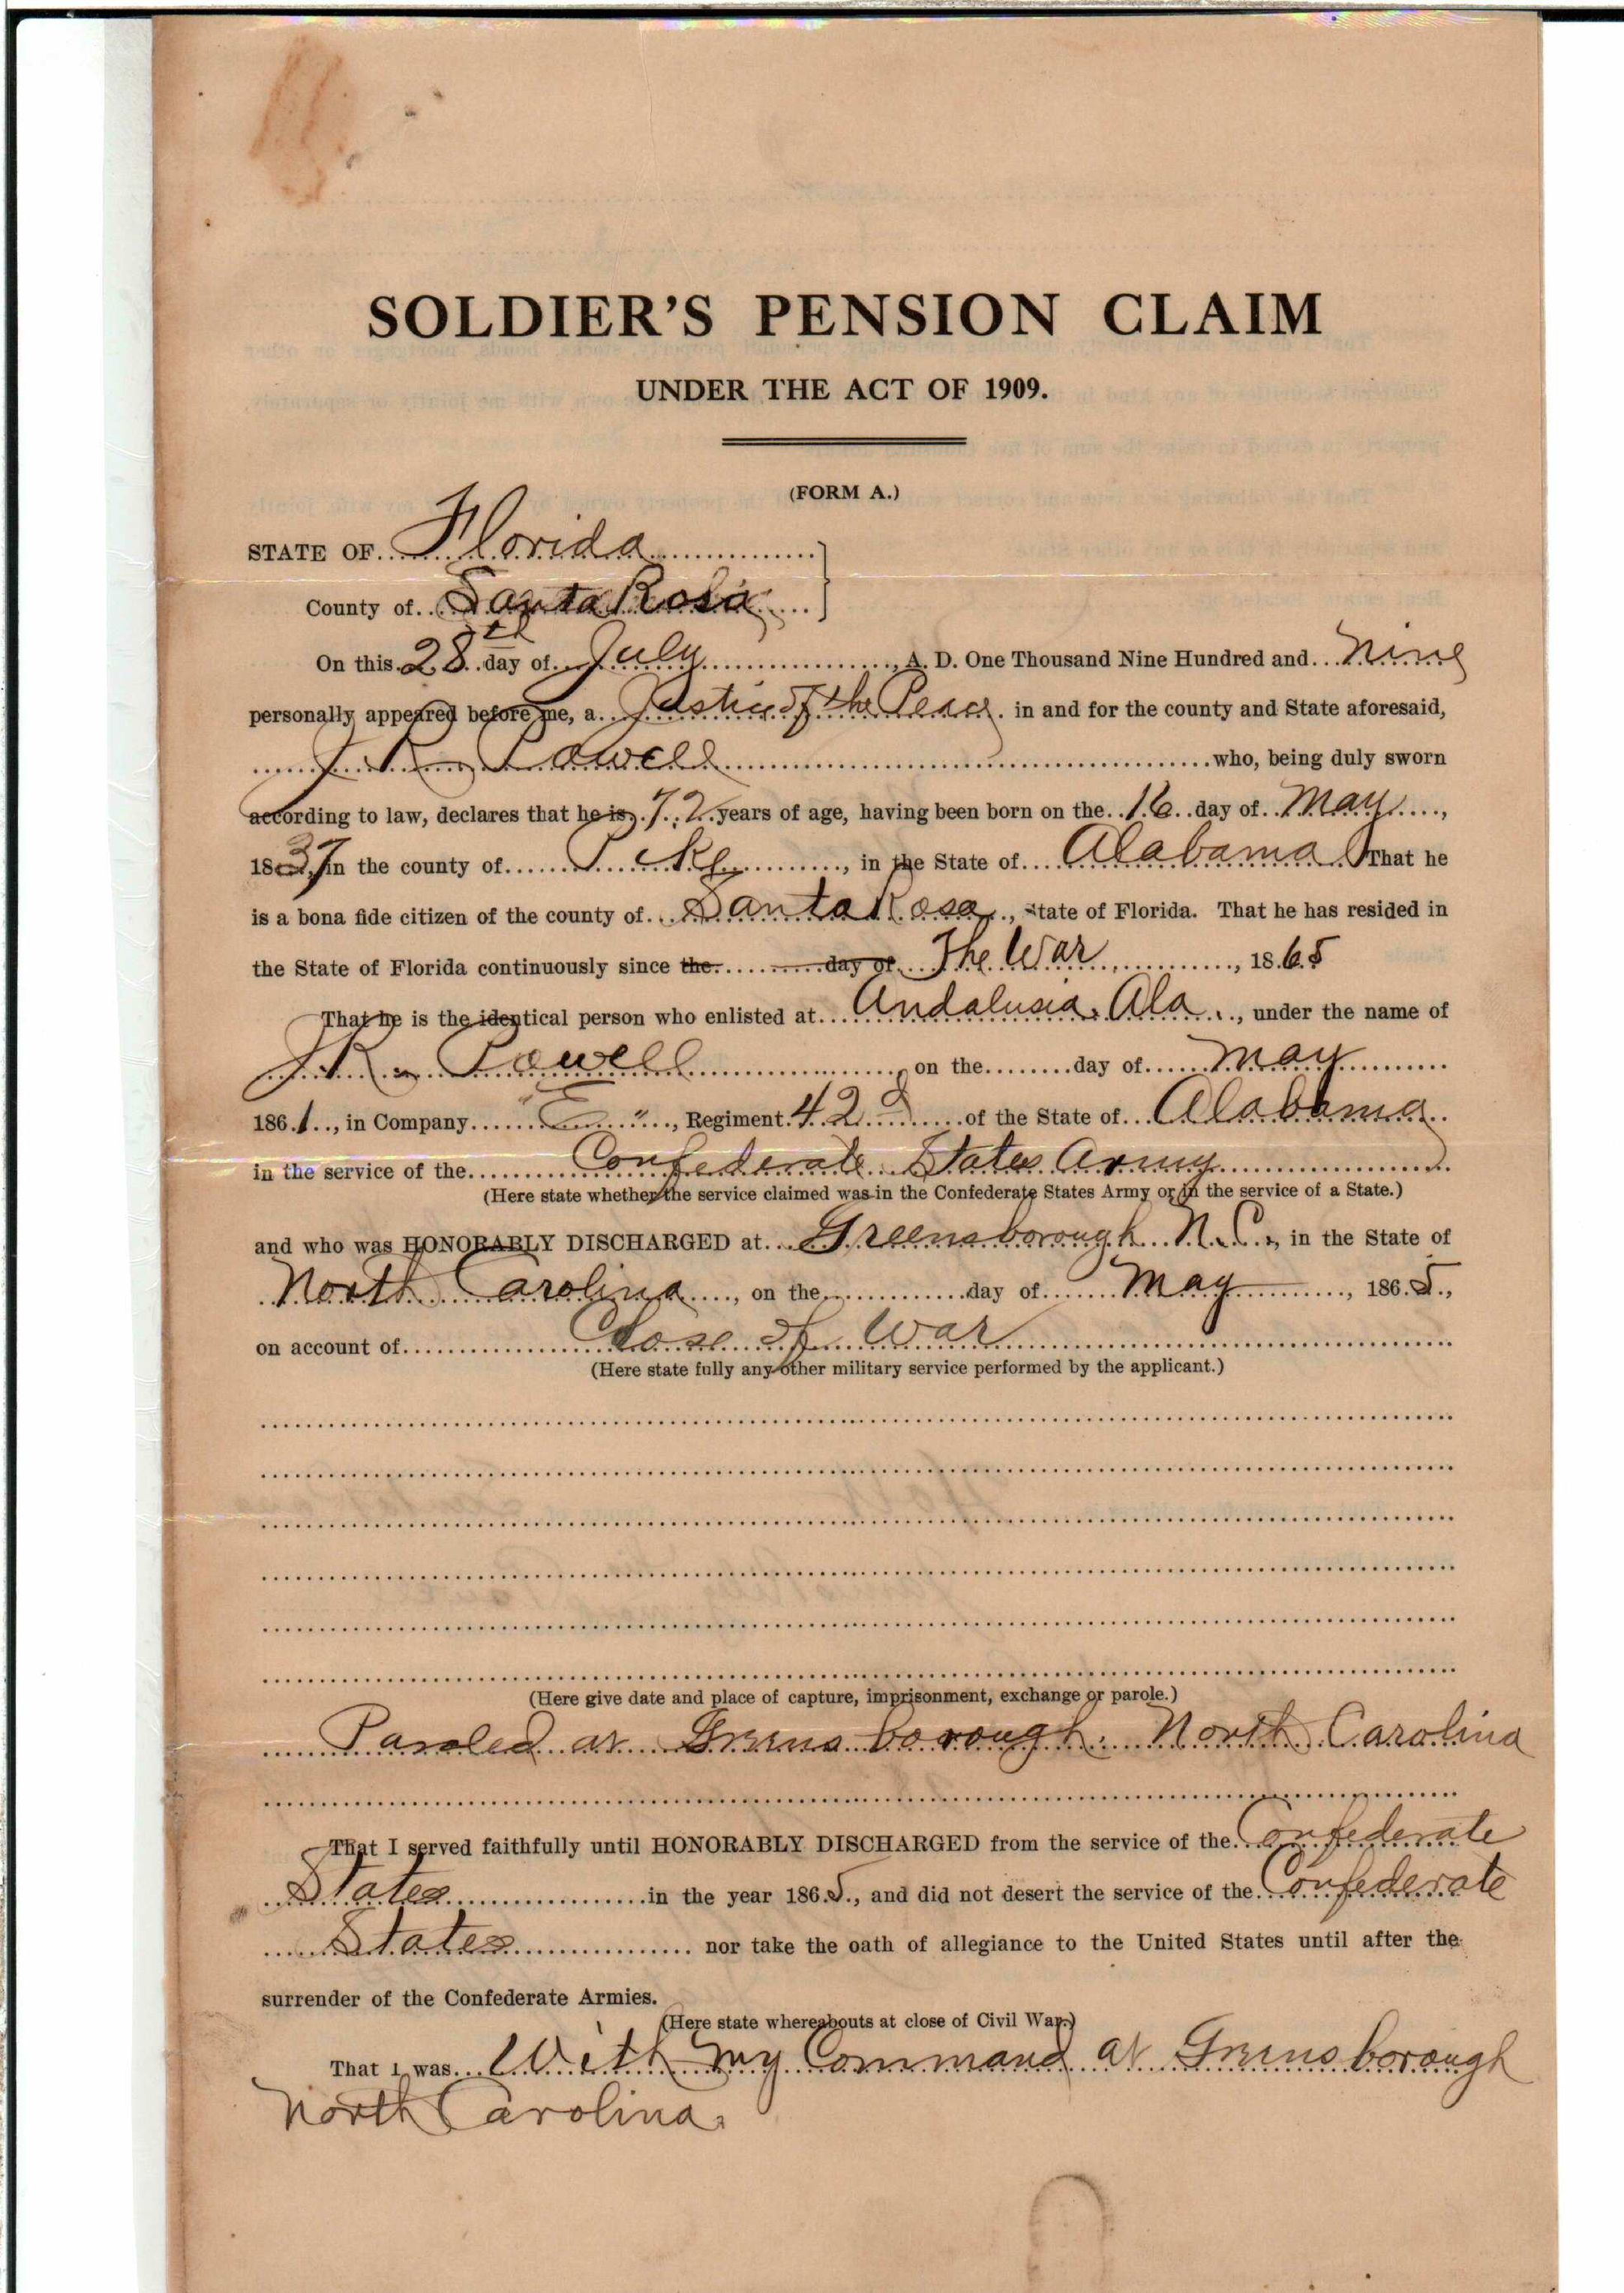 SOLDIER'S PENSION CLAIM
UNDER THE ACT OF 1909.
(FORM A.)
STATE OF Florida
County of Santa Rosa
On this 28th day of July, A. D. One Thousand Nine Hundred and Nine
personally appeared before me, a Justice of the Peace in and for the county and State aforesaid,
J. R. Powell who, being duly sworn
according to law, declares that he is 72 years of age, having been born on the 16 day of May,
1837, in the county of Pike, in the State of Alabama That he
is a bona fide citizen of the county of Santa Rosa, State of Florida. That he has resided in
the State of Florida continuously since the day of The War, 1865
That he is the identical person who enlisted at Andalusia, Ala., under the name of
J. R. Powell on the day of May
1861, in Company "E", Regiment 42d of the State of Alabama
in the service of the Confederate States Army
(Here state whether the service claimed was in the Confederate States Army or in the service of a State.)
and who was HONORABLY DISCHARGED at Greensborough N.C., in the State of
North Carolina, on the day of May, 1865,
on account of Close of War
(Here state fully any other military service performed by the applicant.)
(Here give date and place of capture, imprisonment, exchange or parole.)
Paroled at Greensborough, North Carolina
That I served faithfully until HONORABLY DISCHARGED from the service of the Confederate
States in the year 1865, and did not desert the service of the Confederate
States nor take the oath of allegiance to the United States until after the
surrender of the Confederate Armies.
(Here state whereabouts at close of Civil War.)
That I was With my Command at Greensborough
North Carolina.